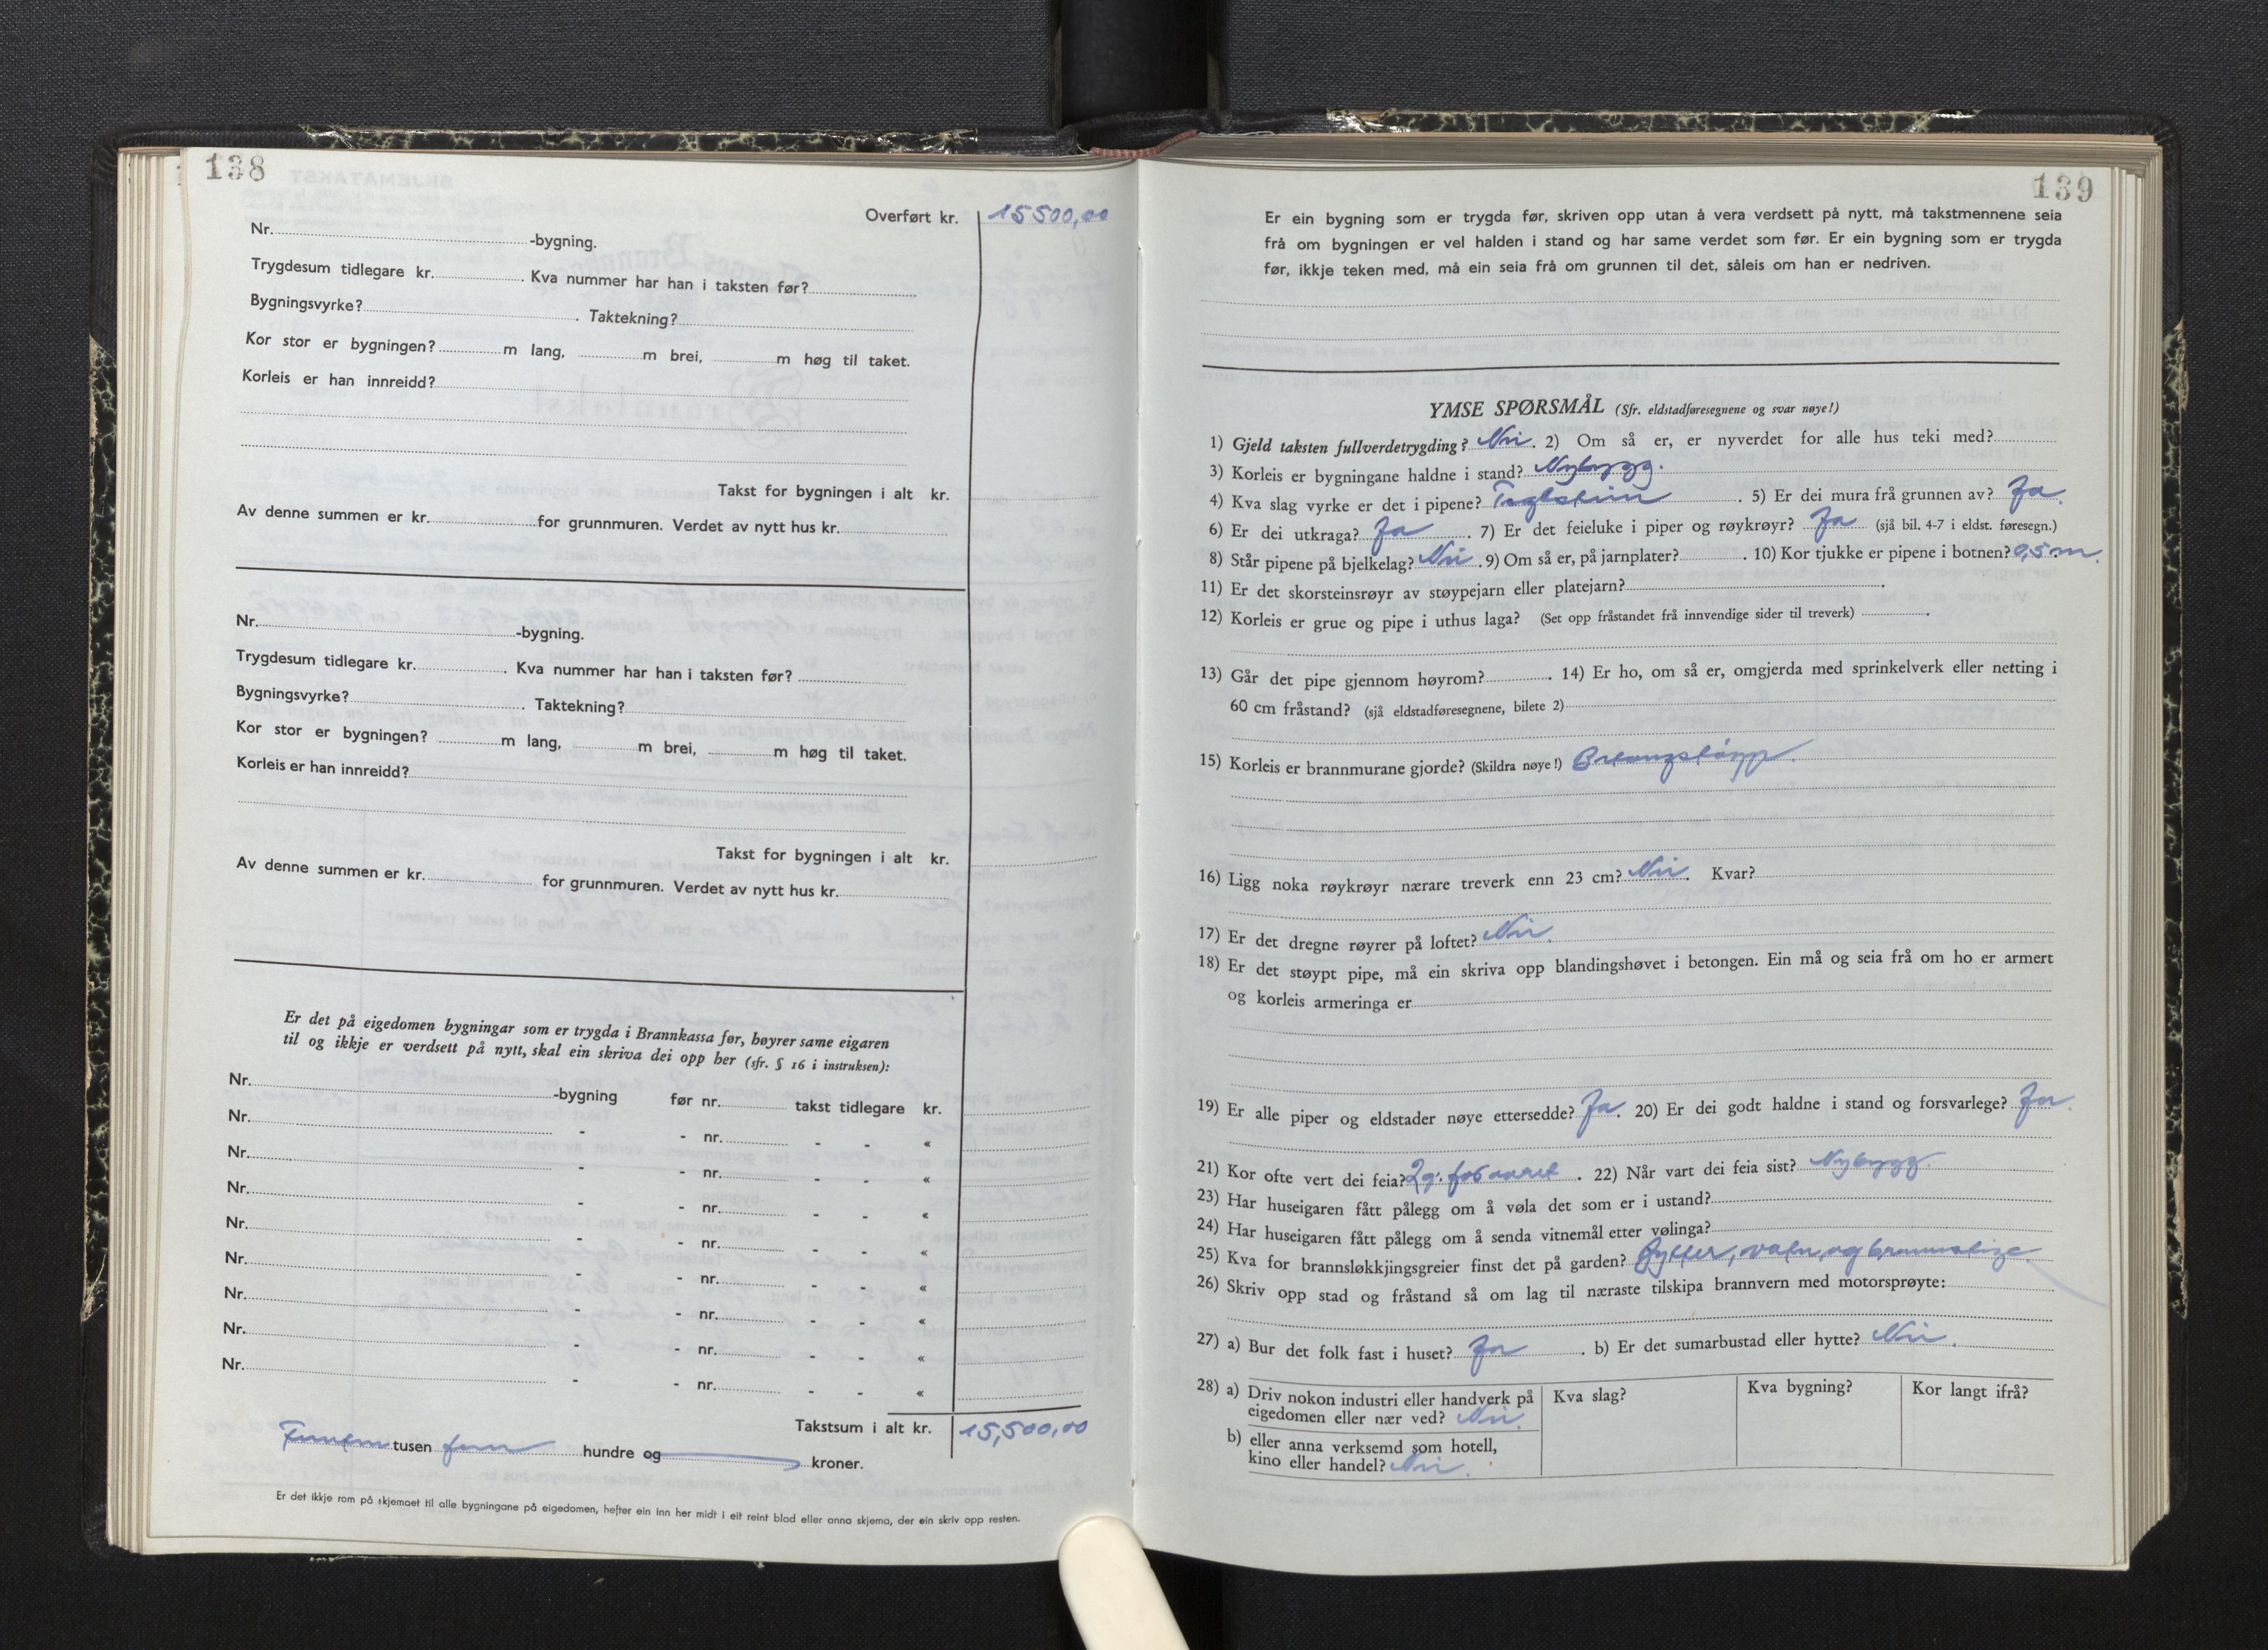 138
Overført kr. 15500,00
Nr. -bygning.
Trygdesum tidlegare kr. . Kva nummer har han i taksten før?
Bygningsvyrke? . Taktekning?
Kor stor er bygningen? m lang, m brei, m høg til taket.
Korleis er han innreidd?
Takst for bygningen i alt kr.
Av denne summen er kr. for grunnmuren. Verdet av nytt hus kr.
Nr. -bygning.
Trygdesum tidlegare kr. . Kva nummer har han i taksten før?
Bygningsvyrke? . Taktekning?
Kor stor er bygningen? m lang, m brei, m høg til taket.
Korleis er han innreidd?
Takst for bygningen i alt kr.
Av denne summen er kr. for grunnmuren. Verdet av nytt hus kr.
Er det på eigedomen bygningar som er trygda i Brannkassa før, høyrer same eigaren
til og ikkje er verdsett på nytt, skal ein skriva dei opp her (sfr. § 16 i instruksen):
Nr. -bygning før nr. takst tidlegare kr.
Nr. - - nr. - - «
Nr. - - nr. - - «
Nr. - - nr. - - «
Nr. - - nr. - - «
Nr. - - nr. - - «
Nr. - - nr. - - «
Nr. - - nr. - - «
Nr. - - nr. - - «
Takstsum i alt kr. 15,500,00
Femten tusen fem hundre og kroner.
Er det ikkje rom på skjemaet til alle bygningane på eigedomen, hefter ein inn her midt i eit reint blad eller anna skjema, der ein skriv opp resten.
139
Er ein bygning som er trygda før, skriven opp utan å vera verdsett på nytt, må takstmennene seia
frå om bygningen er vel halden i stand og har same verdet som før. Er ein bygning som er trygda
før, ikkje teken med, må ein seia frå om grunnen til det, såleis om han er nedriven.
YMSE SPØRSMÅL (Sfr. eldstadføresegnene og svar nøye!)
1) Gjeld taksten fullverdetrygding? Nei. 2) Om så er, er nyverdet for alle hus teki med?
3) Korleis er bygningane haldne i stand? Nybygg.
4) Kva slag vyrke er det i pipene? Teglstein . 5) Er dei mura frå grunnen av? Ja.
6) Er dei utkraga? Ja . 7) Er det feieluke i piper og røykrøyr? Ja (sjå bil. 4-7 i eldst. føresegn.)
8) Står pipene på bjelkelag? Nei . 9) Om så er, på jarnplater? . 10) Kor tjukke er pipene i botnen? 0,5 m.
11) Er det skorsteinsrøyr av støypejarn eller platejarn? .
12) Korleis er grue og pipe i uthus laga? (Set opp fråstandet frå innvendige sider til treverk) .
13) Går det pipe gjennom høyrom? . 14) Er ho, om så er, omgjerda med sprinkelverk eller netting i
60 cm fråstand? (sjå eldstadføresegnene, bilete 2)
15) Korleis er brannmurane gjorde? (Skildra nøye!)
16) Ligg noka røykrøyr nærare treverk enn 23 cm? Nei. Kvar?
17) Er det dregne røyrer på loftet? Nei.
18) Er det støypt pipe, må ein skriva opp blandingshøvet i betongen. Ein må og seia frå om ho er armert
og korleis armeringa er
19) Er alle piper og eldstader nøye ettersedde? Ja. 20) Er dei godt haldne i stand og forsvarlege? Ja.
21) Kor ofte vert dei feia? 2 g. for aaret . 22) Når vart dei feia sist? Nybygg.
23) Har huseigaren fått pålegg om å vøla det som er i ustand?
24) Har huseigaren fått pålegg om å senda vitnemål etter vølinga?
25) Kva for brannsløkkjingsgreier finst det på garden? Bytter, vatn, og brannstige.
26) Skriv opp stad og fråstand så om lag til næraste tilskipa brannvern med motorsprøyte:
27) a) Bur det folk fast i huset? Ja . b) Er det sumarbustad eller hytte? Nei.
28) a) Driv nokon industri eller handverk på Kva slag? Kva bygning? Kor langt ifrå?
eigedomen eller nær ved? Nei.
b) eller anna verksemd som hotell,
kino eller handel? Nei.